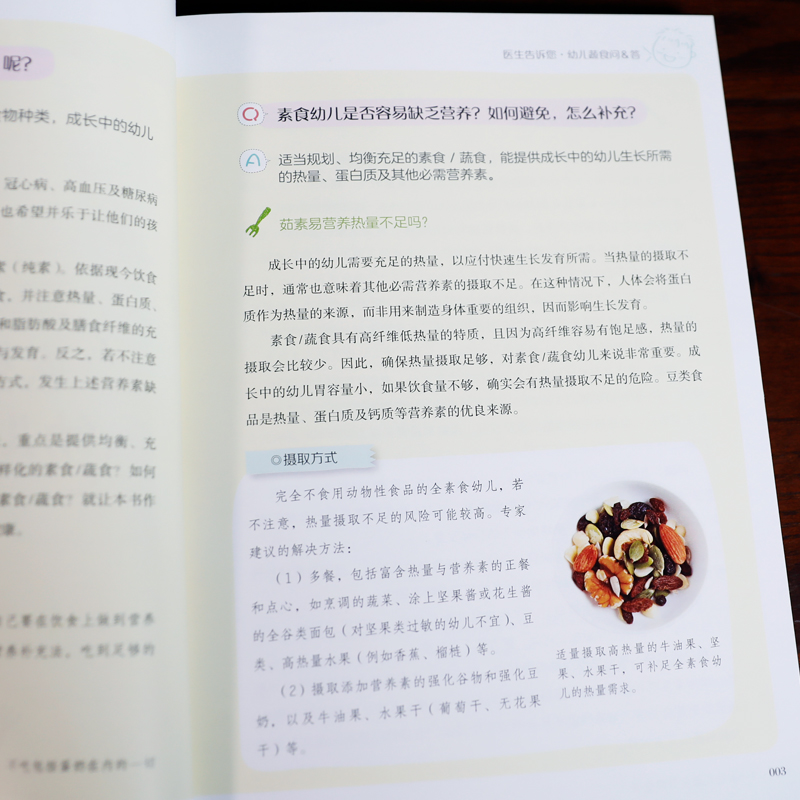 呢?
物种类，成长中的幼儿
冠心病、高血压及糖尿病
也希望并乐于让他们的孩
素（纯素）。依据现今饮食
食，并注意热量、蛋白质、
和脂肪酸及膳食纤维的充
与发育。反之，若不注意
方式，发生上述营养素缺
重点是提供均衡、充
样化的素食/蔬食？如何
素食/蔬食？就让本书作
康。
己要在饮食上做到营养
营养补充法，吃到足够的
医生告诉您·幼儿蔬食问&答
Q 素食幼儿是否容易缺乏营养？如何避免，怎么补充？
A 适当规划、均衡充足的素食/蔬食，能提供成长中的幼儿生长所需
的热量、蛋白质及其他必需营养素。
茹素易营养热量不足吗？
成长中的幼儿需要充足的热量，以应付快速生长发育所需。当热量的摄取不
足时，通常也意味着其他必需营养素的摄取不足。在这种情况下，人体会将蛋白
质作为热量的来源，而非用来制造身体重要的组织，因而影响生长发育。
素食/蔬食具有高纤维低热量的特质，且因为高纤维容易有饱足感，热量的
摄取会比较少。因此，确保热量摄取足够，对素食/蔬食幼儿来说非常重要。成
长中的幼儿胃容量小，如果饮食量不够，确实会有热量摄取不足的危险。豆类食
品是热量、蛋白质及钙质等营养素的优良来源。
◎摄取方式
完全不食用动物性食品的全素食幼儿，若
不注意，热量摄取不足的风险可能较高。专家
建议的解决方法：
（1）多餐，包括富含热量与营养素的正餐
和点心，如烹调的蔬菜、涂上坚果酱或花生酱
的全谷类面包（对坚果类过敏的幼儿不宜）、豆
类、高热量水果（例如香蕉、榴梿）等。
（2）摄取添加营养素的强化谷物和强化豆
奶，以及牛油果、水果干（葡萄干、无花果
干）等。
适量摄取高热量的牛油果、坚
果、水果干，可补足全素食幼
儿的热量需求。
003